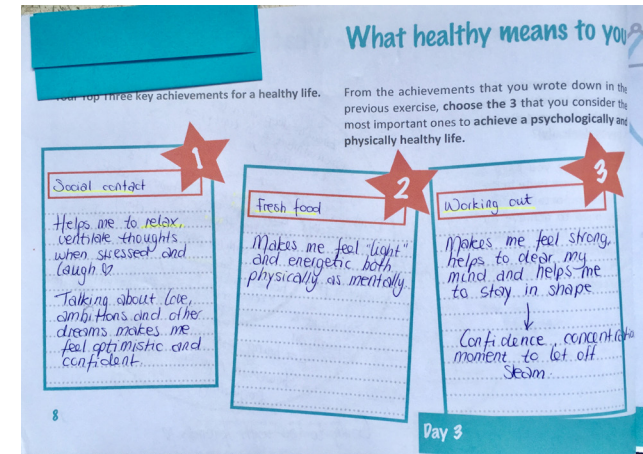 What healthy means to you
Your Top Three key achievements for a healthy life.
From the achievements that you wrote down in the
previous exercise, choose the 3 that you consider the
most important ones to achieve a psychologically and
physically healthy life.
1
Social contact
Helps me to relax,
ventilate thoughts
when stressed and
laugh ♡
Talking about love,
ambitions and other
dreams makes me
feel optimistic and
confident.
2
Fresh food
Makes me feel "light"
and energetic both
physically as mentally
3
Working out
Makes me feel strong,
helps to clear my
mind and helps me
to stay in shape
↓
Confidence, concentratio
moment to let off
steam.
8
Day 3